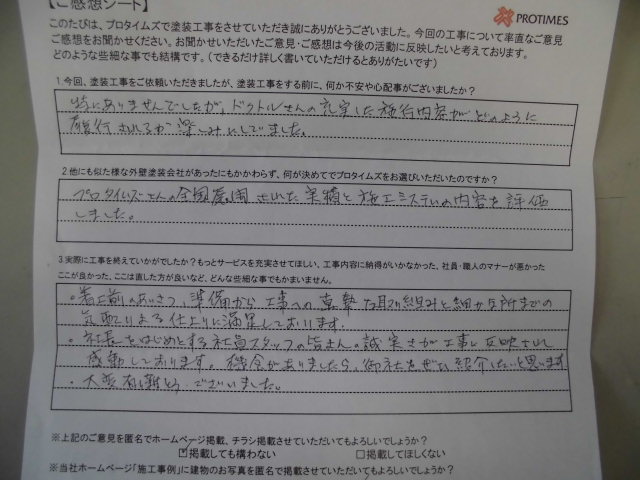 【ご感想シート】
PROTIMES
このたびは、プロタイムズで塗装工事をさせていただき誠にありがとうございました。今回の工事について率直なご意見
ご感想をお聞かせください。お聞かせいただいたご意見・ご感想は今後の活動に反映したいと考えております。
どのような些細な事でも結構です。（できるだけ詳しく書いていただけるとありがたいです）
1.今回、塗装工事をご依頼いただきましたが、塗装工事をする前に、何か不安や心配事がございましたか？
特にありませんでしたが、ドクトルさんの充実した施行内容がどのように
履行されるか楽しみにしていました。
2.他にも似た様な外壁塗装会社があったにもかかわらず、何が決めてでプロタイムズをお選びいただいたのですか？
プロタイムズさんの全国展開された業績と施工システムの内容を評価
しました。
3.実際に工事を終えていかがでしたか？もっとサービスを充実させてほしい、工事内容に納得がいかなかった、社員・職人のマナーが悪かった
ここが良かった、ここは直した方が良いなど、どんな些細な事でもかまいません。
・着工前のあいさつ、準備から工事への真摯な取り組みと細かな所までの
気配りによる仕上りに満足しております。
・社長をはじめとする社員スタッフの皆さんの誠実さが工事に反映され
感動しております。機会がありましたら、御社をぜひ紹介したいと思います
・大変有難とうございました。
※上記のご意見を匿名でホームページ掲載、チラシ掲載させていただいてもよろしいでしょうか？
☑掲載しても構わない □掲載してほしくない
※当社ホームページ「施工事例」に建物のお写真を匿名で掲載させていただいてもよろしいでしょうか？